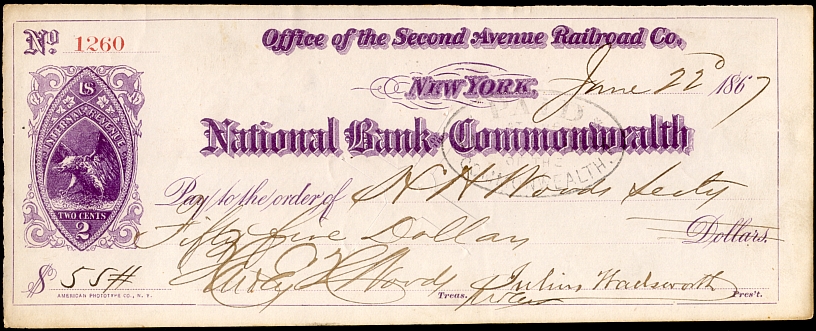 No. 1260
Office of the Second Avenue Railroad Co.
New York, June 22d 1867
National Bank of the Commonwealth
US
INTERNAL REVENUE
TWO CENTS
2
PAID
COMMONWEALTH.
Pay to the order of H H Woods Secty
Fifty five Dollars Dollars
$55 #
Woods Treas. Julius Wadsworth Pres't.
AMERICAN PHOTOTYPE CO., N. Y.